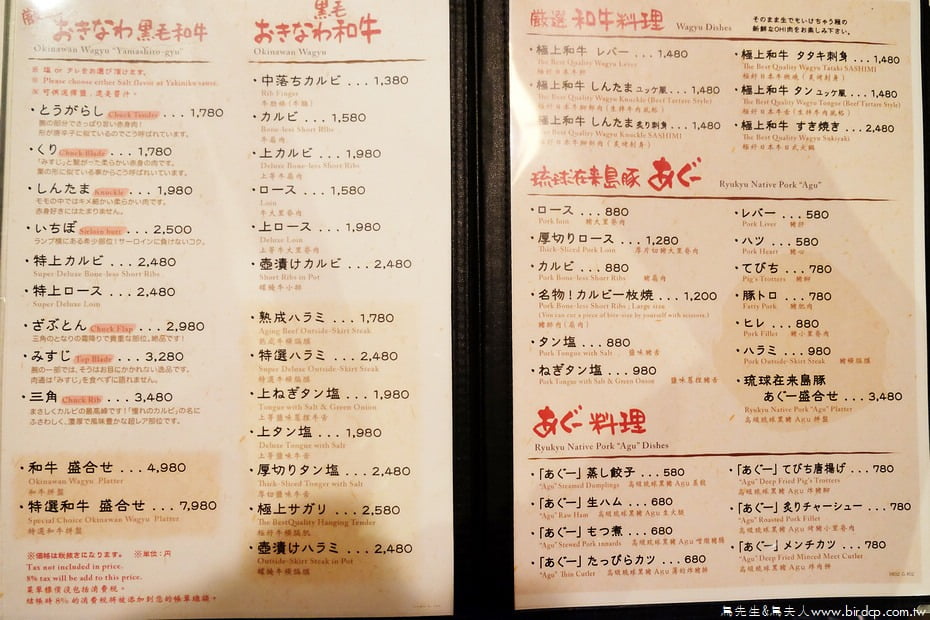 おきなわ黒毛和牛
Okinawan Wagyu "Yamashiro-gyu"
※ 塩 or タレをお選び頂けます。
※ Please choose either Salt flavor or Yakiniku sauce.
※ 可供選擇鹽，還是醬汁。
・とうがらし Chuck Tender ... 1,780
腕の部分でさっぱり旨い赤身肉！
形が唐辛子に似ているのでこう呼ばれています。
・くり Chuck Blade ... 1,780
「みすじ」と繋がった柔らかい赤身の肉です。
栗の形に似ている事からこう呼ばれいています。
・しんたま Knuckle ... 1,980
モモの中ではキメ細かい柔らかい肉です。
赤身好きにはたまりません。
・いちぼ Sirloin butt ... 2,500
ランプ横にある希少部位！サーロインに負けないコク。
・特上カルビ ... 2,480
Super Deluxe Bone-less Short Ribs
・特上ロース ... 2,480
Super Deluxe Loin
・ざぶとん Chuck Flap ... 2,980
三角のとなりの霜降りで貴重な部位。絶品です！
・みすじ Top Blade ... 3,280
腕の一部では、そうはお目にかかれない逸品です。
肉通は「みすじ」を食べずに語れません。
・三角 Chuck Rib ... 3,480
まさしくカルビの最高峰です！「憧れのカルビ」の名に
ふさわしく、濃厚で風味豊かな超レア部位です。
・和牛 盛合せ ... 4,980
Okinawan Wagyu Platter
和牛拼盤
・特選和牛 盛合せ ... 7,980
Special Choice Okinawan Wagyu Platter
特選和牛拼盤
※価格は税抜きになります。 ※単位：円
Tax not included in price.
8% tax will be added to this price.
菜單標價沒包括消費税。
結帳時8%的消費税將被添加到您的帳單總額。
黒毛
おきなわ和牛
Okinawan Wagyu
・中落ちカルビ ... 1,380
Rib Finger
牛肋條（牛腩）
・カルビ ... 1,580
Bone-less Short Ribs
牛扇肉
・上カルビ ... 1,980
Deluxe Bone-less Short Ribs
上等牛扇肉
・ロース ... 1,580
Loin
牛大里脊肉
・上ロース ... 1,980
Deluxe Loin
上等牛大里脊肉
・壺漬けカルビ ... 2,480
Short Ribs in Pot
螺旋牛小排
・熟成ハラミ ... 1,780
Aging Beef Outside-Skirt Steak
熟成牛橫膈膜
・特選ハラミ ... 2,480
Super Deluxe Outside-Skirt Steak
特選牛橫膈膜
・上ねぎタン塩 ... 1,980
Tongue with Salt & Green Onion
上等鹽味蔥捏牛舌
・上タン塩 ... 1,980
Deluxe Tongue with Salt
上等鹽味牛舌
・厚切りタン塩 ... 2,480
Thick-Sliced Tonger with Salt
厚切鹽味牛舌
・極上サガリ ... 2,580
The BestQuality Hanging Tender
極好牛橫膈肌
・壺漬けハラミ ... 2,480
Outside-Skirt Steak in Pot
螺旋牛橫膈膜
厳選 和牛料理 Wagyu Dishes
そのまま生でもいけちゃう程の
新鮮なOH!肉をお楽しみ下さい。
・極上和牛 レバー ... 1,480
The Best Quality Wagyu Lever
極好日本牛肝
・極上和牛 しんたま ユッケ風 ... 1,480
The Best Quality Wagyu Knuckle (Beef Tartare Style)
・極上和牛 しんたま 炙り刺身 ... 1,480
The Best Quality Wagyu Knuckle SASHIMI
・極上和牛 タタキ刺身 ... 1,480
The Best Quality Wagyu Tataki SASHIMI
・極上和牛 タン ユッケ風 ... 1,480
The Best Quality Wagyu Tongue (Beef Tartare Style)
・極上和牛 すき焼き ... 2,480
The Best Quality Wagyu Sukiyaki
極好日本牛日式火鍋
琉球在来島豚 あぐー Ryukyu Native Pork "Agu"
・ロース ... 880
Pork Loin 豬大里脊肉
・厚切りロース ... 1,280
Thick-Sliced Pork Loin 厚片切豬大里脊肉
・カルビ ... 880
Pork Bone-less Short Ribs 豬扇肉
・名物！カルビ一枚焼 ... 1,200
Pork Bone-less Short Ribs ; Large size
(You can cut a piece of bite-size by yourself with scissors.)
豬排肉（扇肉）
・タン塩 ... 880
Pork Tongue with Salt 鹽味豬舌
・ねぎタン塩 ... 980
Pork Tongue with Salt & Green Onion 鹽味蔥捏豬舌
・レバー ... 580
Pork Liver 豬肝
・ハツ ... 580
Pork Heart 豬心
・てびち ... 780
Pig's Trotters 豬腳
・豚トロ ... 780
Fatty Pork 豬肥肉
・ヒレ ... 880
Pork Fillet 豬小里脊肉
・ハラミ ... 980
Pork Outside-Skirt Steak 豬橫膈膜
・琉球在来島豚
あぐー盛合せ ... 3,480
Ryukyu Native Pork "Agu" Platter
高級琉球黑豬 Agu 拼盤
あぐー料理
Ryukyu Native Pork "Agu" Dishes
・「あぐー」蒸し餃子 ... 580
"Agu" Steamed Dumplings 高級琉球黑豬 Agu 蒸餃
・「あぐー」生ハム ... 680
"Agu" Raw Ham 高級琉球黑豬 Agu 生火腿
・「あぐー」もつ煮 ... 680
"Agu" Stewed Pork innards 高級琉球黑豬 Agu 燉燴豬腸
・「あぐー」たっぴらカツ ... 680
"Agu" Thin Cutler 高級琉球黑豬 Agu 薄的炸豬排
・「あぐー」てびち唐揚げ ... 780
"Agu" Deep Fried Pig's Trotters
高級琉球黑豬 Agu 炸豬腳
・「あぐー」炙りチャーシュー ... 780
"Agu" Roasted Pork Fillet
高級琉球黑豬 Agu 烤豬小里脊肉
・「あぐー」メンチカツ ... 780
"Agu" Deep Fried Minced Meet Cutler
高級琉球黑豬 Agu 炸肉餅
鳥先生&鳥夫人 www.birdcp.com.tw